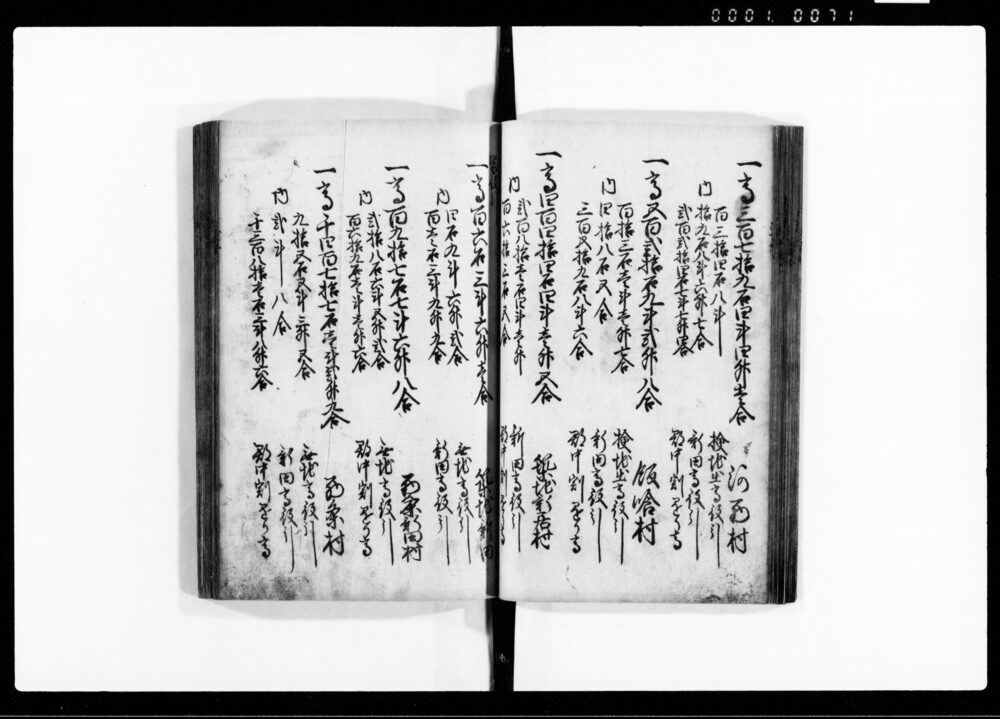 0001 0071
一高三百七拾九石四斗四升壱合 河西村
内
百三拾四石八斗 検地出高役引
拾九石八斗六升七合 新田高役引
弐百弐拾四石七斗七升四合 郡中割懸り高
一高五百弐拾石九斗弐升八合 飯喰村
内
百拾三石壱斗壱升七合
四拾八石五合 新田高役引
三百五拾九石八斗六合 郡中割懸り高
一高四百四拾四石四斗壱升五合
内
弐百八拾壱石四斗壱升 新田高役引
百六拾三石五合 郡中割懸り高
一高百六石三斗六升壱合
内
四石九斗六升弐合
百壱石三斗九升九合 新田高役引
一高百九拾七石七斗六升八合 西条新田村
内
弐拾八石六斗五升弐合
百六拾九石壱斗壱升六合 郡中割懸り高
一高千四百七拾七石壱斗弐升九合 西条村
内
九拾五石五斗三升五合
弐斗八合 新田高役引
千三百八拾壱石三斗八升六合 郡中割懸り高